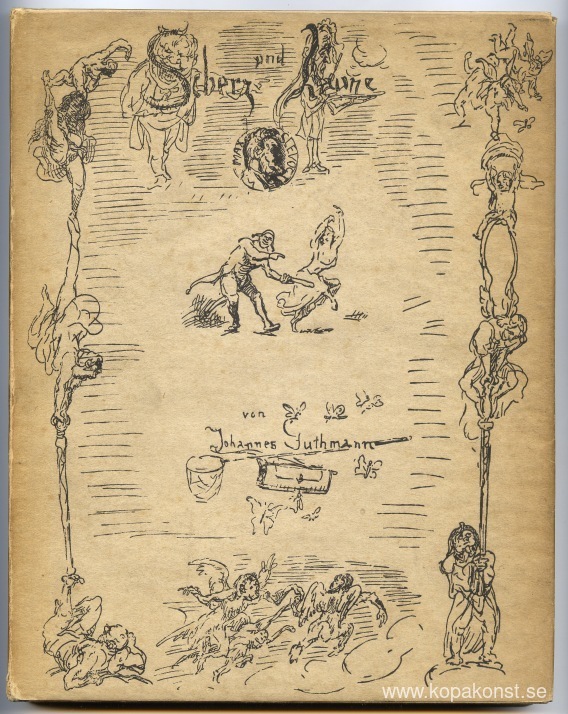 Scherz und Laune
von
Johannes Guthmann
www.kopakonst.se